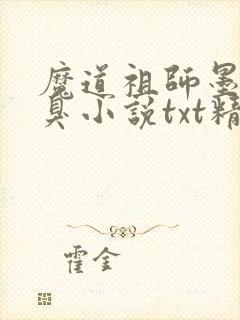 魔道祖師墨
臭小說txt精
霍金